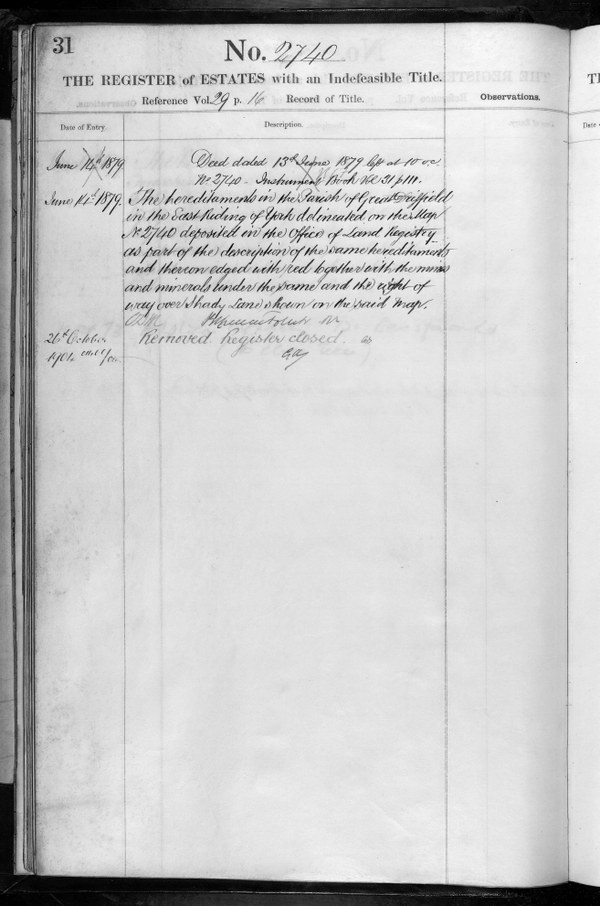 31
No. 2740
THE REGISTER of ESTATES with an Indefeasible Title.
Reference Vol. 29 p. 16 Record of Title.
Observations.
Date of Entry.
Description.
June 14th 1879
Deed dated 13th June 1879 left at 10 o.c.
No 2740 - Instrument Book Vol 31 p 111.
June 14th 1879.
The hereditaments in the Parish of Great Driffield
in the East Riding of York delineated on the Map
No 2740 deposited in the Office of Land Registry
as part of the description of the same hereditaments
and thereon edged with red together with the mines
and minerals under the same and the right of
way over Shady Lane shown on the said map.
20th October
Removed. Register closed.